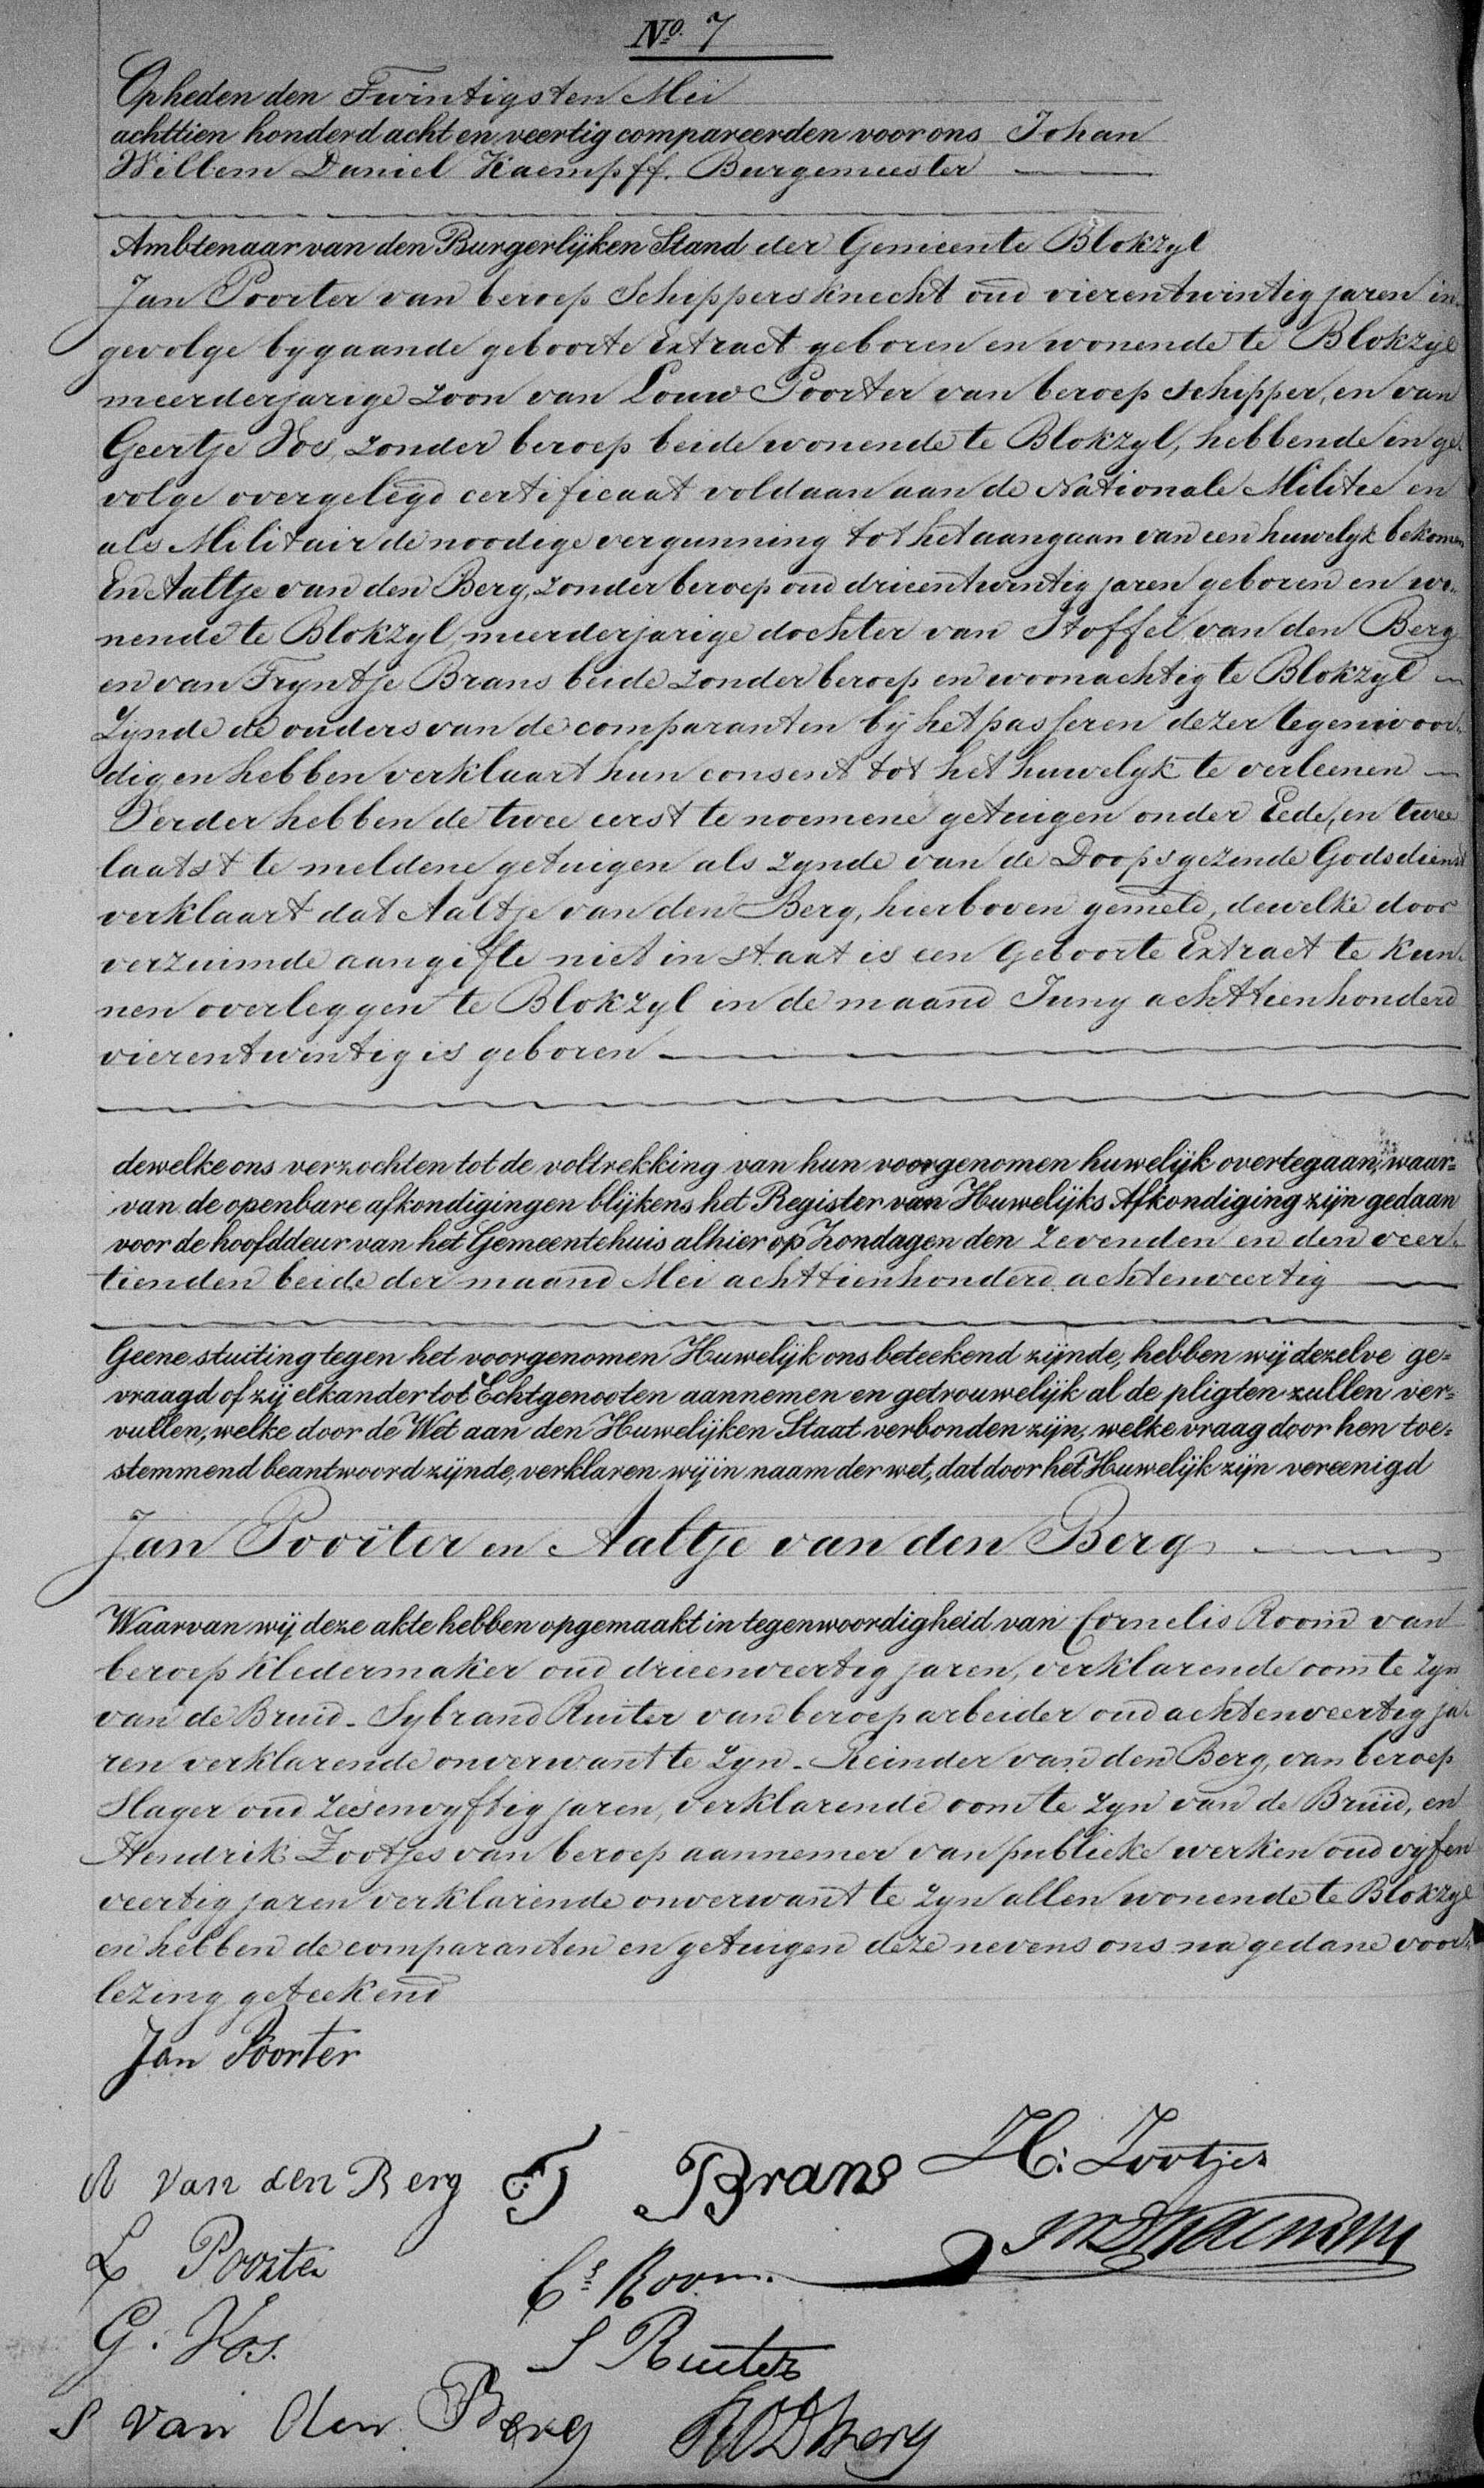 No. 7
Op heden den Twintigsten Mei
achttien honderd acht en veertig compareerden voor ons Johan
Willem Daniel Kaempff. Burgemeester
Ambtenaar van den Burgerlijken Stand der Gemeente Blokzyl
Jan Poorter van beroep Schippersknecht oud vierentwintig jaren in
gevolge bygaande geboorte Extract geboren en wonende te Blokzyl
meerderjarige zoon van Louw Poorter van beroep schipper, en van
Geertje Vos, zonder beroep beide wonende te Blokzyl, hebbende in ge-
volge overgelegd certificaat voldaan aan de Nationale Militie en
als Militair de noodige vergunning tot het aangaan van een huwelyk bekomen
En Aaltje van den Berg, zonder beroep oud drieentwintig jaren geboren en wo-
nende te Blokzyl, meerderjarige dochter van Stoffel van den Berg
en van Fryntje Brans beide zonder beroep en woonachtig te Blokzyl
Zynde de ouders van de comparanten bij het passeren dezer tegenwoor-
dig en hebben verklaart hun consent tot het huwelyk te verleenen
Verder hebben de twee eerst te noemene getuigen onder Eede, en twee
laatst te meldene getuigen als zynde van de Doopsgezinde Godsdienst
verklaart dat Aaltje van den Berg, hierboven gemeld, dewelke door
verzuimde aangifte niet in staat is een Geboorte Extract te kun-
nen overleggen te Blokzyl in de maand Juny achttienhonderd
vierentwintig is geboren
dewelke ons verzochten tot de voltrekking van hun voorgenomen huwelijk overtegaan, waar=
van de openbare afkondigingen blijkens het Register van Huwelijks Afkondiging zijn gedaan
voor de hoofddeur van het Gemeentehuis alhier op Zondagen den Zevenden en den veer-
tienden beide der maand Mei achttienhonderd achtenveertig
Geene stuiting tegen het voorgenomen Huwelijk ons beteekend zijnde, hebben wij dezelve ge=
vraagd of zij elkander tot Echtgenooten aannemen en getrouwelijk al de pligten zullen ver=
vullen, welke door de Wet aan den Huwelijken Staat verbonden zijn, welke vraag door hen toe=
stemmend beantwoord zijnde, verklaren wij in naam der wet, dat door het Huwelijk zijn vereenigd
Jan Poorter en Aaltje van den Berg
Waarvan wij deze akte hebben opgemaakt in tegenwoordigheid van Cornelis Room van
beroep kledermaker oud drieenveertig jaren, verklarende oom te zyn
van de Bruid - Sybrand Ruiter van beroep arbeider oud achtenveertig ja-
ren verklarende onverwant te zyn - Reinder van den Berg, van beroep
Slager oud zesenvyftig jaren, verklarende oom te zyn van de Bruid, en
Hendrik Zootjes van beroep aannemer van publieke werken oud vyfen
veertig jaren verklarende onverwant te zyn allen wonende te Blokzyl
en hebben de comparanten en getuigen deze nevens ons na gedane voor-
lezing geteekend
Jan Poorter
A van den Berg F Brans H. Zootjes
L Poorter
Cs Room.
G. Vos.
S Ruiter
S van den Berg RVDBerg